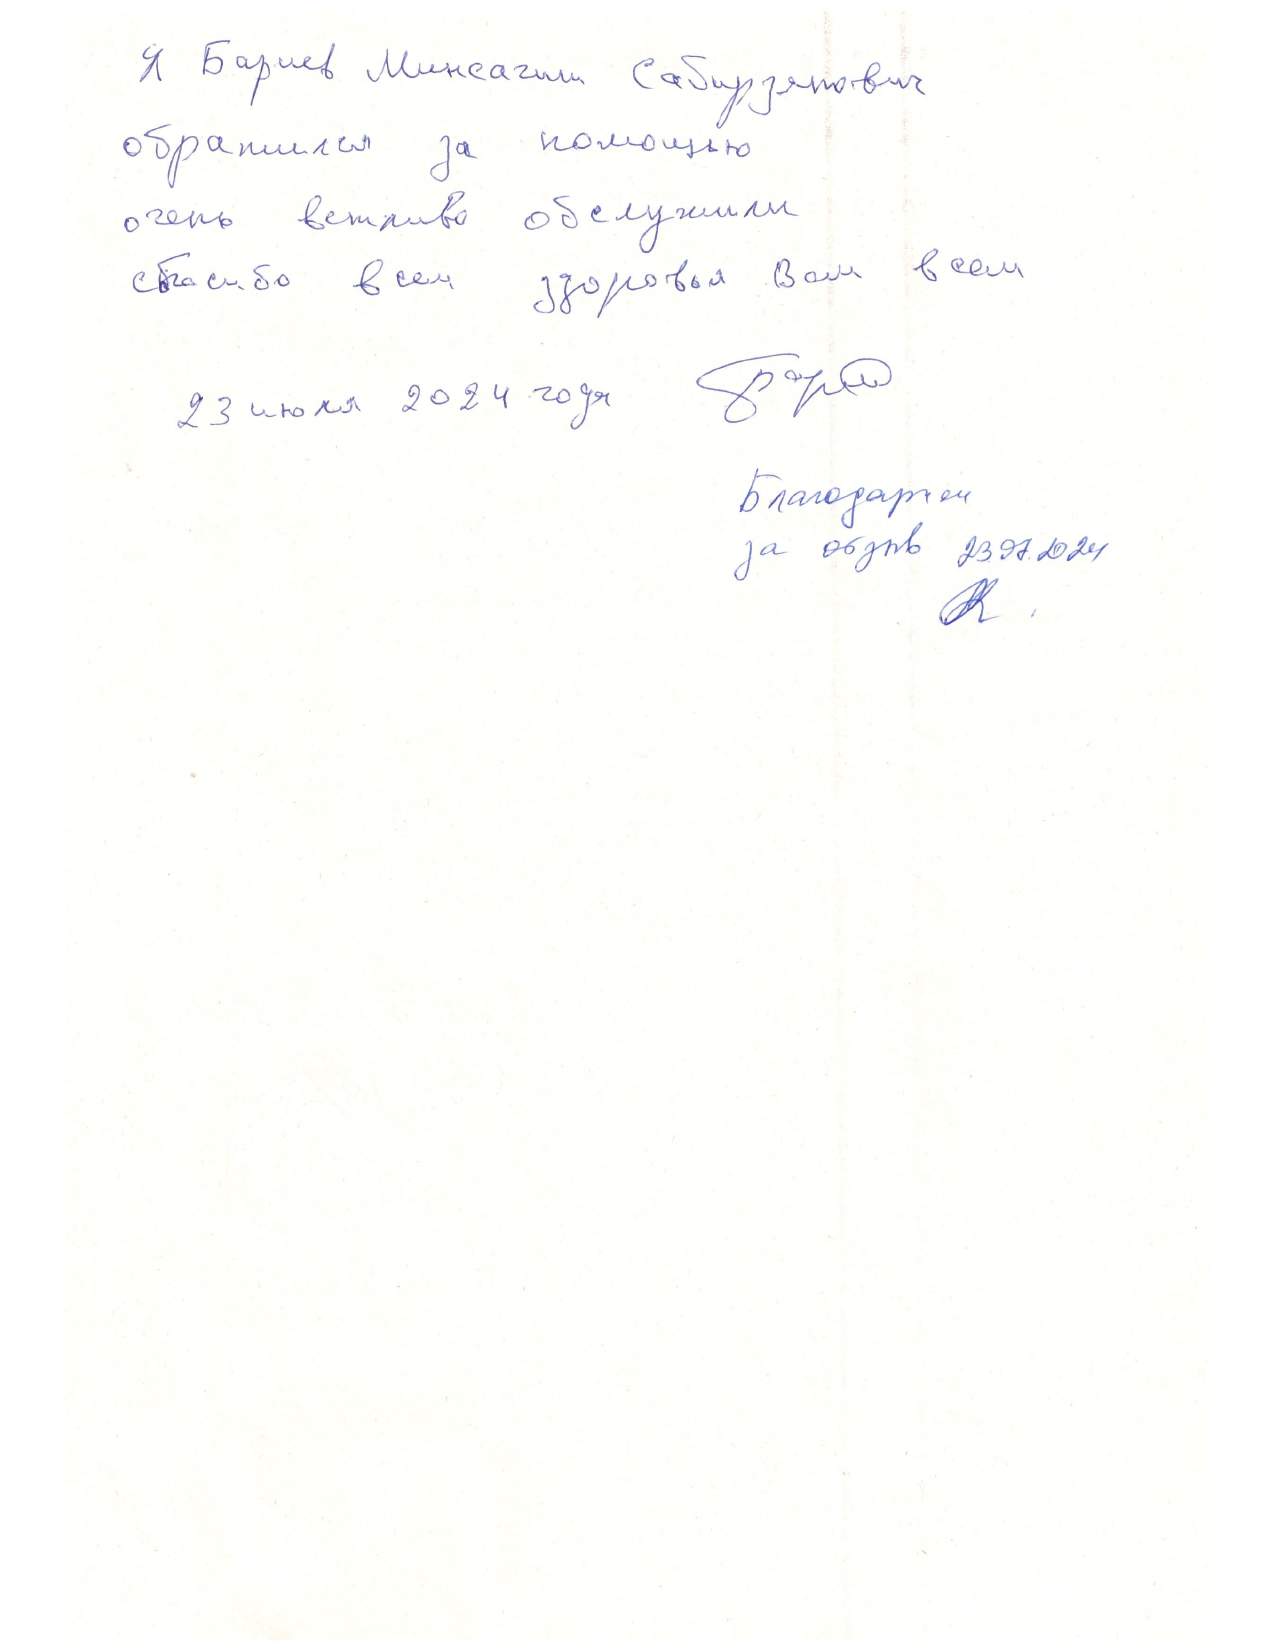 Я Бариев Минсагит Сабирзянович
обратился за помощью
очень вежливо обслужили
спасибо всем здоровья Вам всем
23 июля 2024 года
Благодарим
за отзыв 23.07.2024